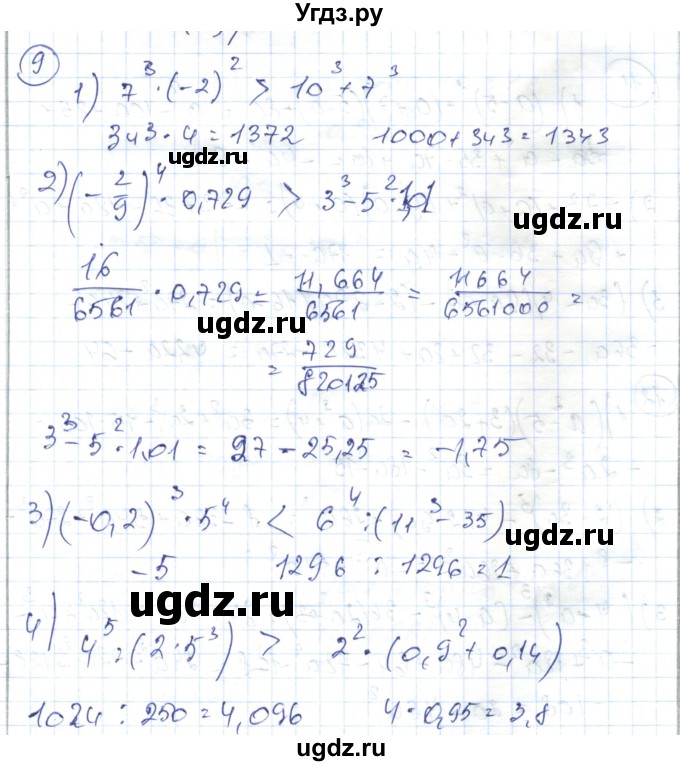 Угдз.ру
9
1) 7³ · (-2)² > 10³ + 7³
343 · 4 = 1372 1000 + 343 = 1343
ugdz.ru
2) (-2/9)⁴ · 0,729 > 3³ - 5² · 1,01
ugdz.ru
16/6561 · 0,729 = 11,664/6561 = 11664/6561000 =
ugdz.ru
= 729/820125
3³ - 5² · 1,01 = 27 - 25,25 = -1,75
3) (-0,2)³ · 5⁴ < 6⁴ : (11³ - 35)
ugdz.ru
-5 1296 : 1296 = 1
ugdz.ru
4) 4⁵ : (2 · 5³) > 2² · (0,9² + 0,14)
ugdz.ru
1024 : 250 = 4,096 4 · 0,95 = 3,8
ugdz.ru